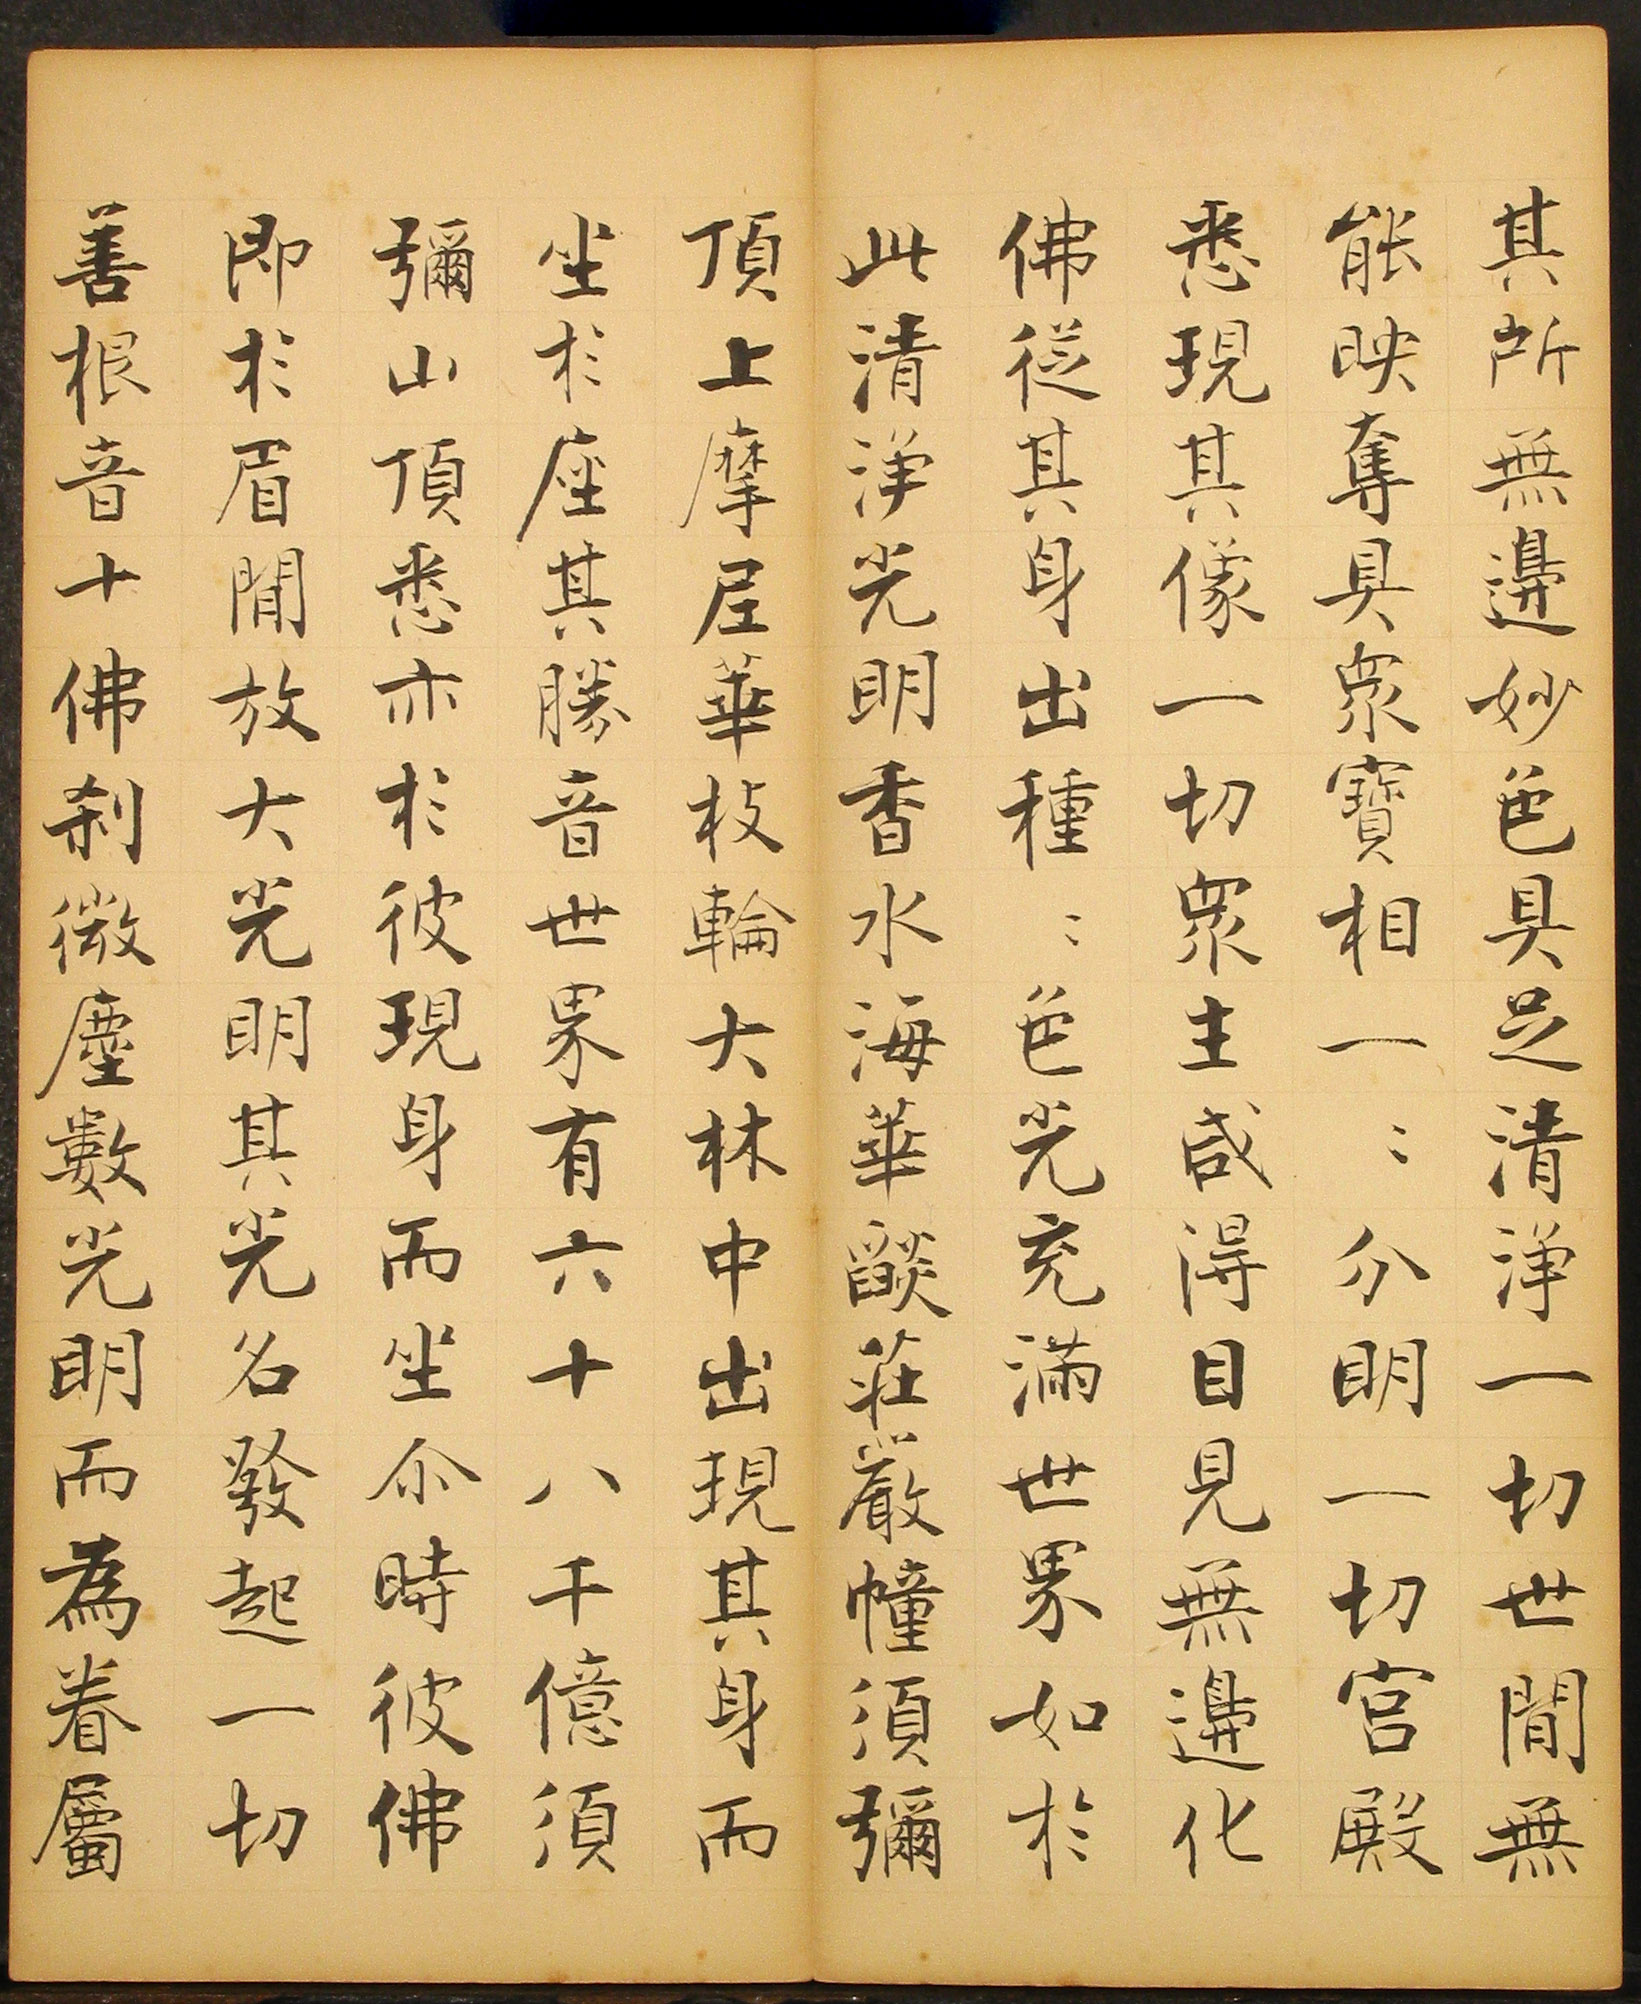 其所無邊妙色具足清淨一切世間無
能映奪具眾寶相一〻分明一切宮殿
悉現其像一切眾生咸得目見無邊化
佛從其身出種〻色光充滿世界如於
此清淨光明香水海華燄莊嚴幢須彌
頂上摩尼華枝輪大林中出現其身而
坐於座其勝音世界有六十八千億須
彌山頂悉亦於彼現身而坐尒時彼佛
即於眉間放大光明其光名發起一切
善根音十佛剎微塵數光明而為眷屬